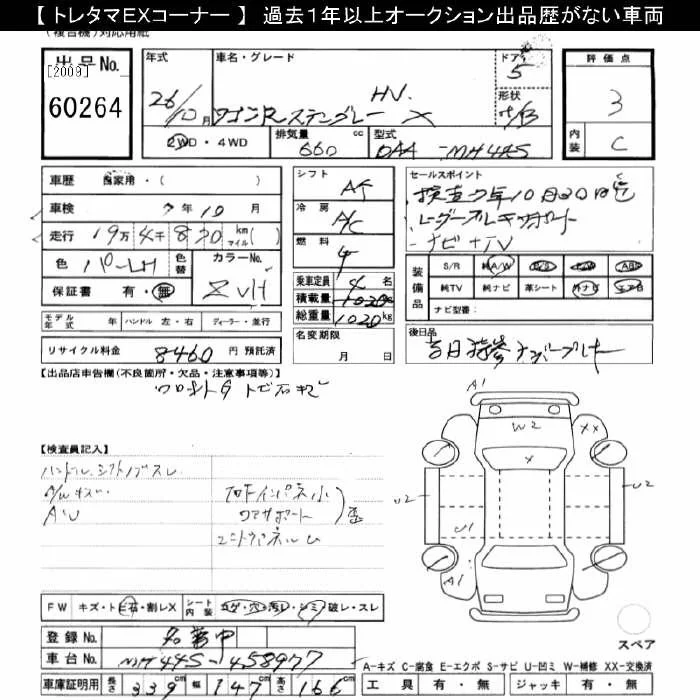 【 トレタマEXコーナー 】 過去1年以上オークション出品歴がない車両
(複合機)対応用紙
出品No. [2009] 60264
年式 26/10月
車名・グレード HV. ワゴンRスティングレー X
ドア 5
形状
評価点 3
内装 C
2WD・4WD
排気量 660 cc
型式 DAA-MH44S
車歴 自家用・( )
車検 7年10月
走行 19万4千8 30 km マイル( )
色 パールH
色替
カラーNo. ZVH
保証書 有・無
モデル年式 年 ハンドル 左・右 ディーラー・並行
リサイクル料金 8460 円 預託済
シフト AT
冷房 A/C
燃料
乗車定員 4 名
積載量 1020 kg
総重量 1020 kg
名変期限 月 日
セールスポイント
検査7年10月30日迄
レーダーブレーキサポート
ナビ+TV
装備品 S/R 純A/W P/S P/W ABS
純TV 純ナビ 革シート 外ナビ エアB
ナビ型番:
後日品
【出品店申告欄(不良箇所・欠品・注意事項等)】
フロントG トビ石キズ
【検査員記入】
ハンドル、シフトノブスレ
A/Wキズ
AU
A1
W2
XX
X
U2
U2
U1
A1
FW キズ・トビ石・割レX シート内装 コゲ・穴・汚レ・シミ・破レ・スレ
登録No. 名変中
車台No. MH44S-458977
車庫証明用 長さ 339 cm 幅 147 cm 高さ 166 cm
スペア
A-キズ C-腐食 E-エクボ S-サビ U-凹ミ W-補修 XX-交換済
工具 有・無 ジャッキ 有・無